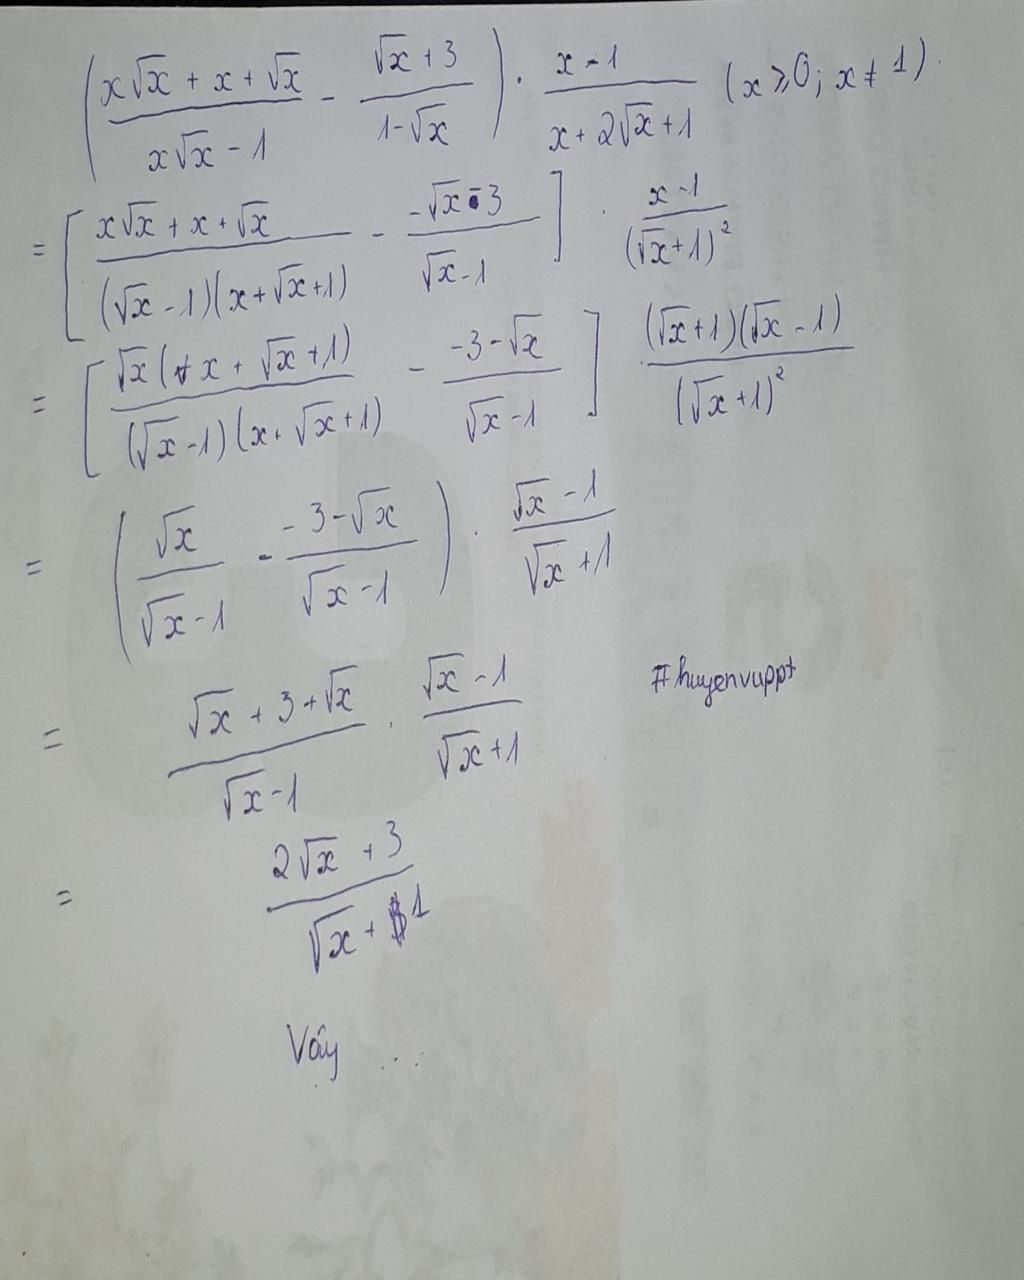 (x√x + x + √x / x√x - 1 - √x + 3 / 1 - √x) . x - 1 / x + 2√x + 1 (x ≥ 0; x ≠ 1).
= [x√x + x + √x / (√x - 1)(x + √x + 1) - -√x - 3 / √x - 1] . x - 1 / (√x + 1)²
= [√x (x + √x + 1) / (√x - 1)(x + √x + 1) - -3 - √x / √x - 1] . (√x + 1)(√x - 1) / (√x + 1)²
= (√x / √x - 1 - -3 - √x / √x - 1) . √x - 1 / √x + 1
= √x + 3 + √x / √x - 1 . √x - 1 / √x + 1
#huyenvuppt
= 2√x + 3 / √x + 1
Vậy ...